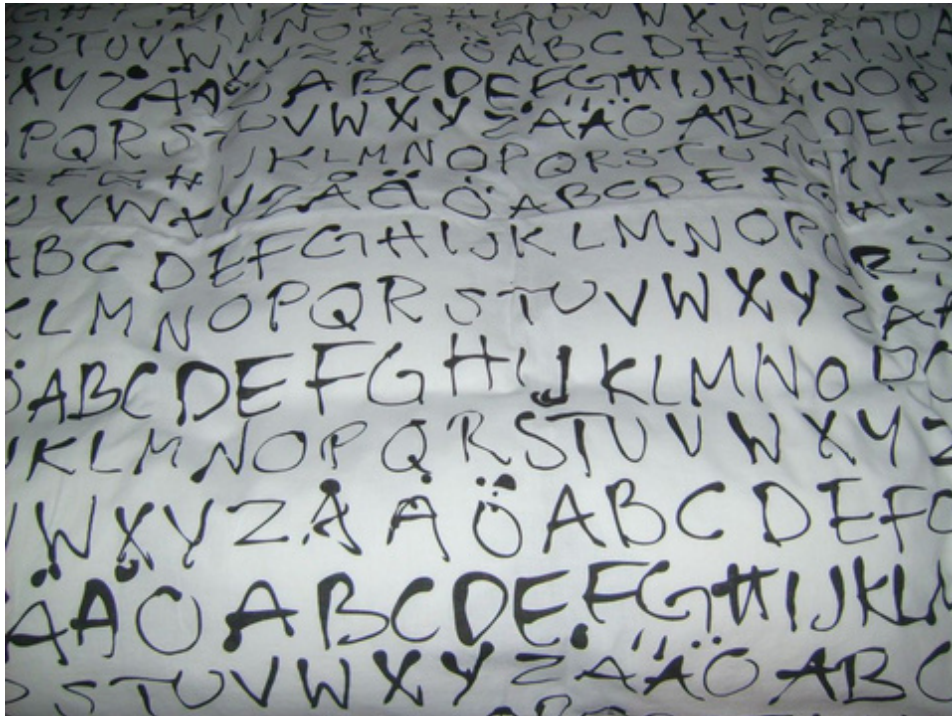 S T U V W X Y Z Å Ä Ö A B C D E F
X Y Z Å Ä A B C D E F G H I J K L M N O P
P Q R S T U V W X Y Z Å Ä Ö A B C D E F G
E F G H I J K L M N O P Q R S T U V W X Y Z
U V W X Y Z Å Ä Ö A B C D E F G H I J
A B C D E F G H I J K L M N O P Q R S
K L M N O P Q R S T U V W X Y Z Å Ä
Ö A B C D E F G H I J K L M N O P Q
J K L M N O P Q R S T U V W X Y Z
V W X Y Z Å Ä Ö A B C D E F G
Å Ä Ö A B C D E F G H I J K L M
R S T U V W X Y Z Å Ä Ö A B C